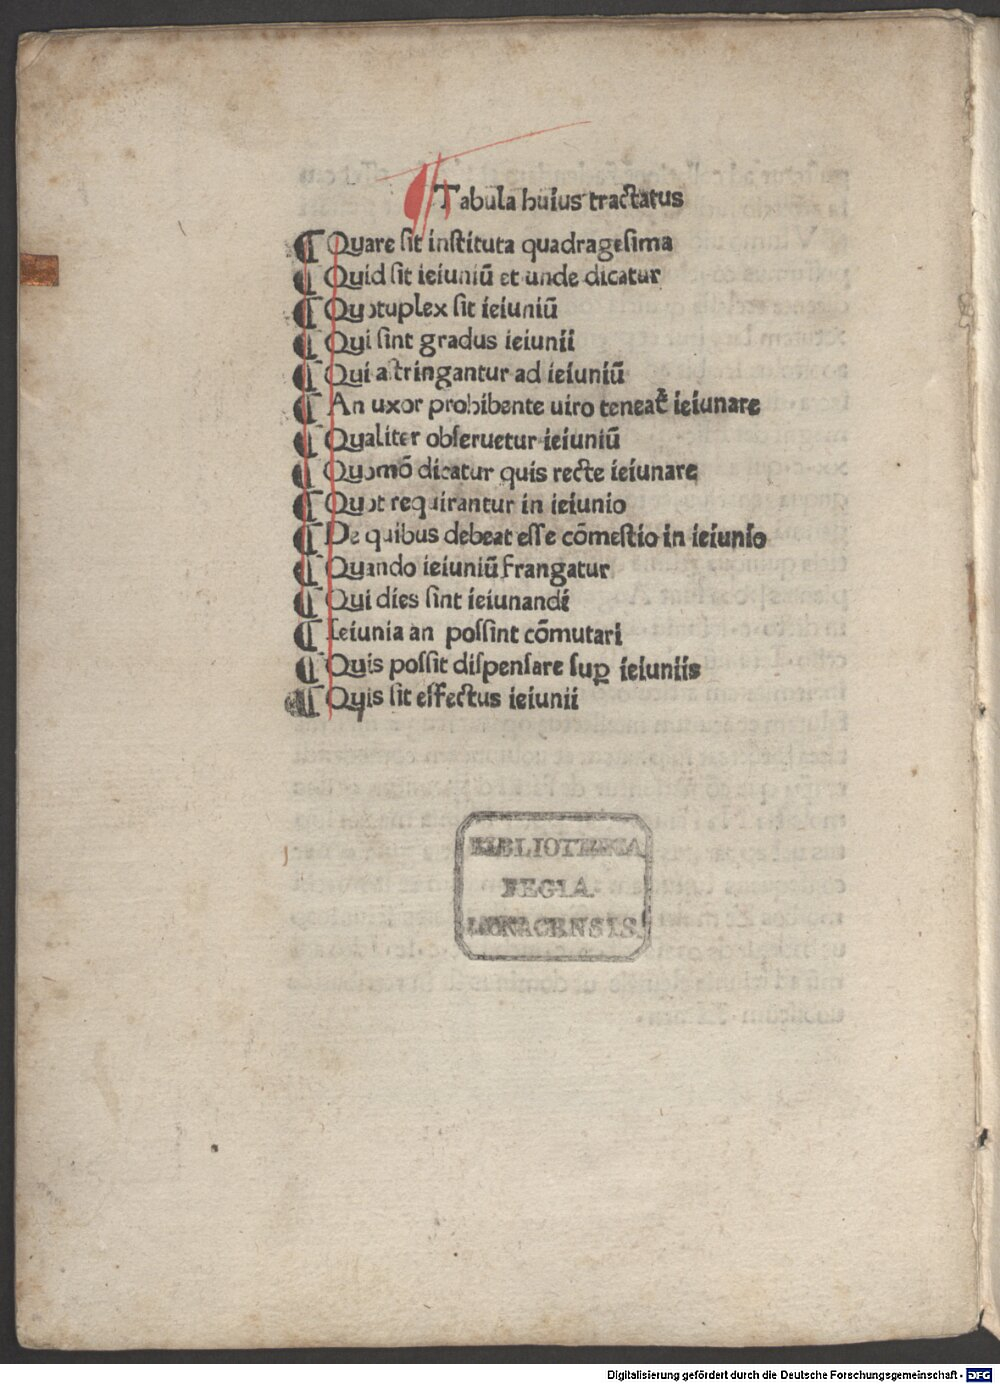 ¶ Tabula huius tractatus
¶ Quare sit instituta quadragesima
¶ Quid sit ieiuniū et unde dicatur
¶ Quotuplex sit ieiuniū
¶ Qui sint gradus ieiunii
¶ Qui astringantur ad ieiuniū
¶ An uxor prohibente uiro teneat̄ ieiunare
¶ Qualiter obseruetur ieiuniū
¶ Quomō dicatur quis recte ieiunare
¶ Quot requirantur in ieiunio
¶ De quibus debeat esse cōmestio in ieiunio
¶ Quando ieiuniū frangatur
¶ Qui dies sint ieiunandi
¶ Ieiunia an possint cōmutari
¶ Quis possit dispensare suꝑ ieiuniis
¶ Quis sit effectus ieiunii
BIBLIOTHECA
REGIA
MONACENSIS.
Digitalisierung gefördert durch die Deutsche Forschungsgemeinschaft - DFG